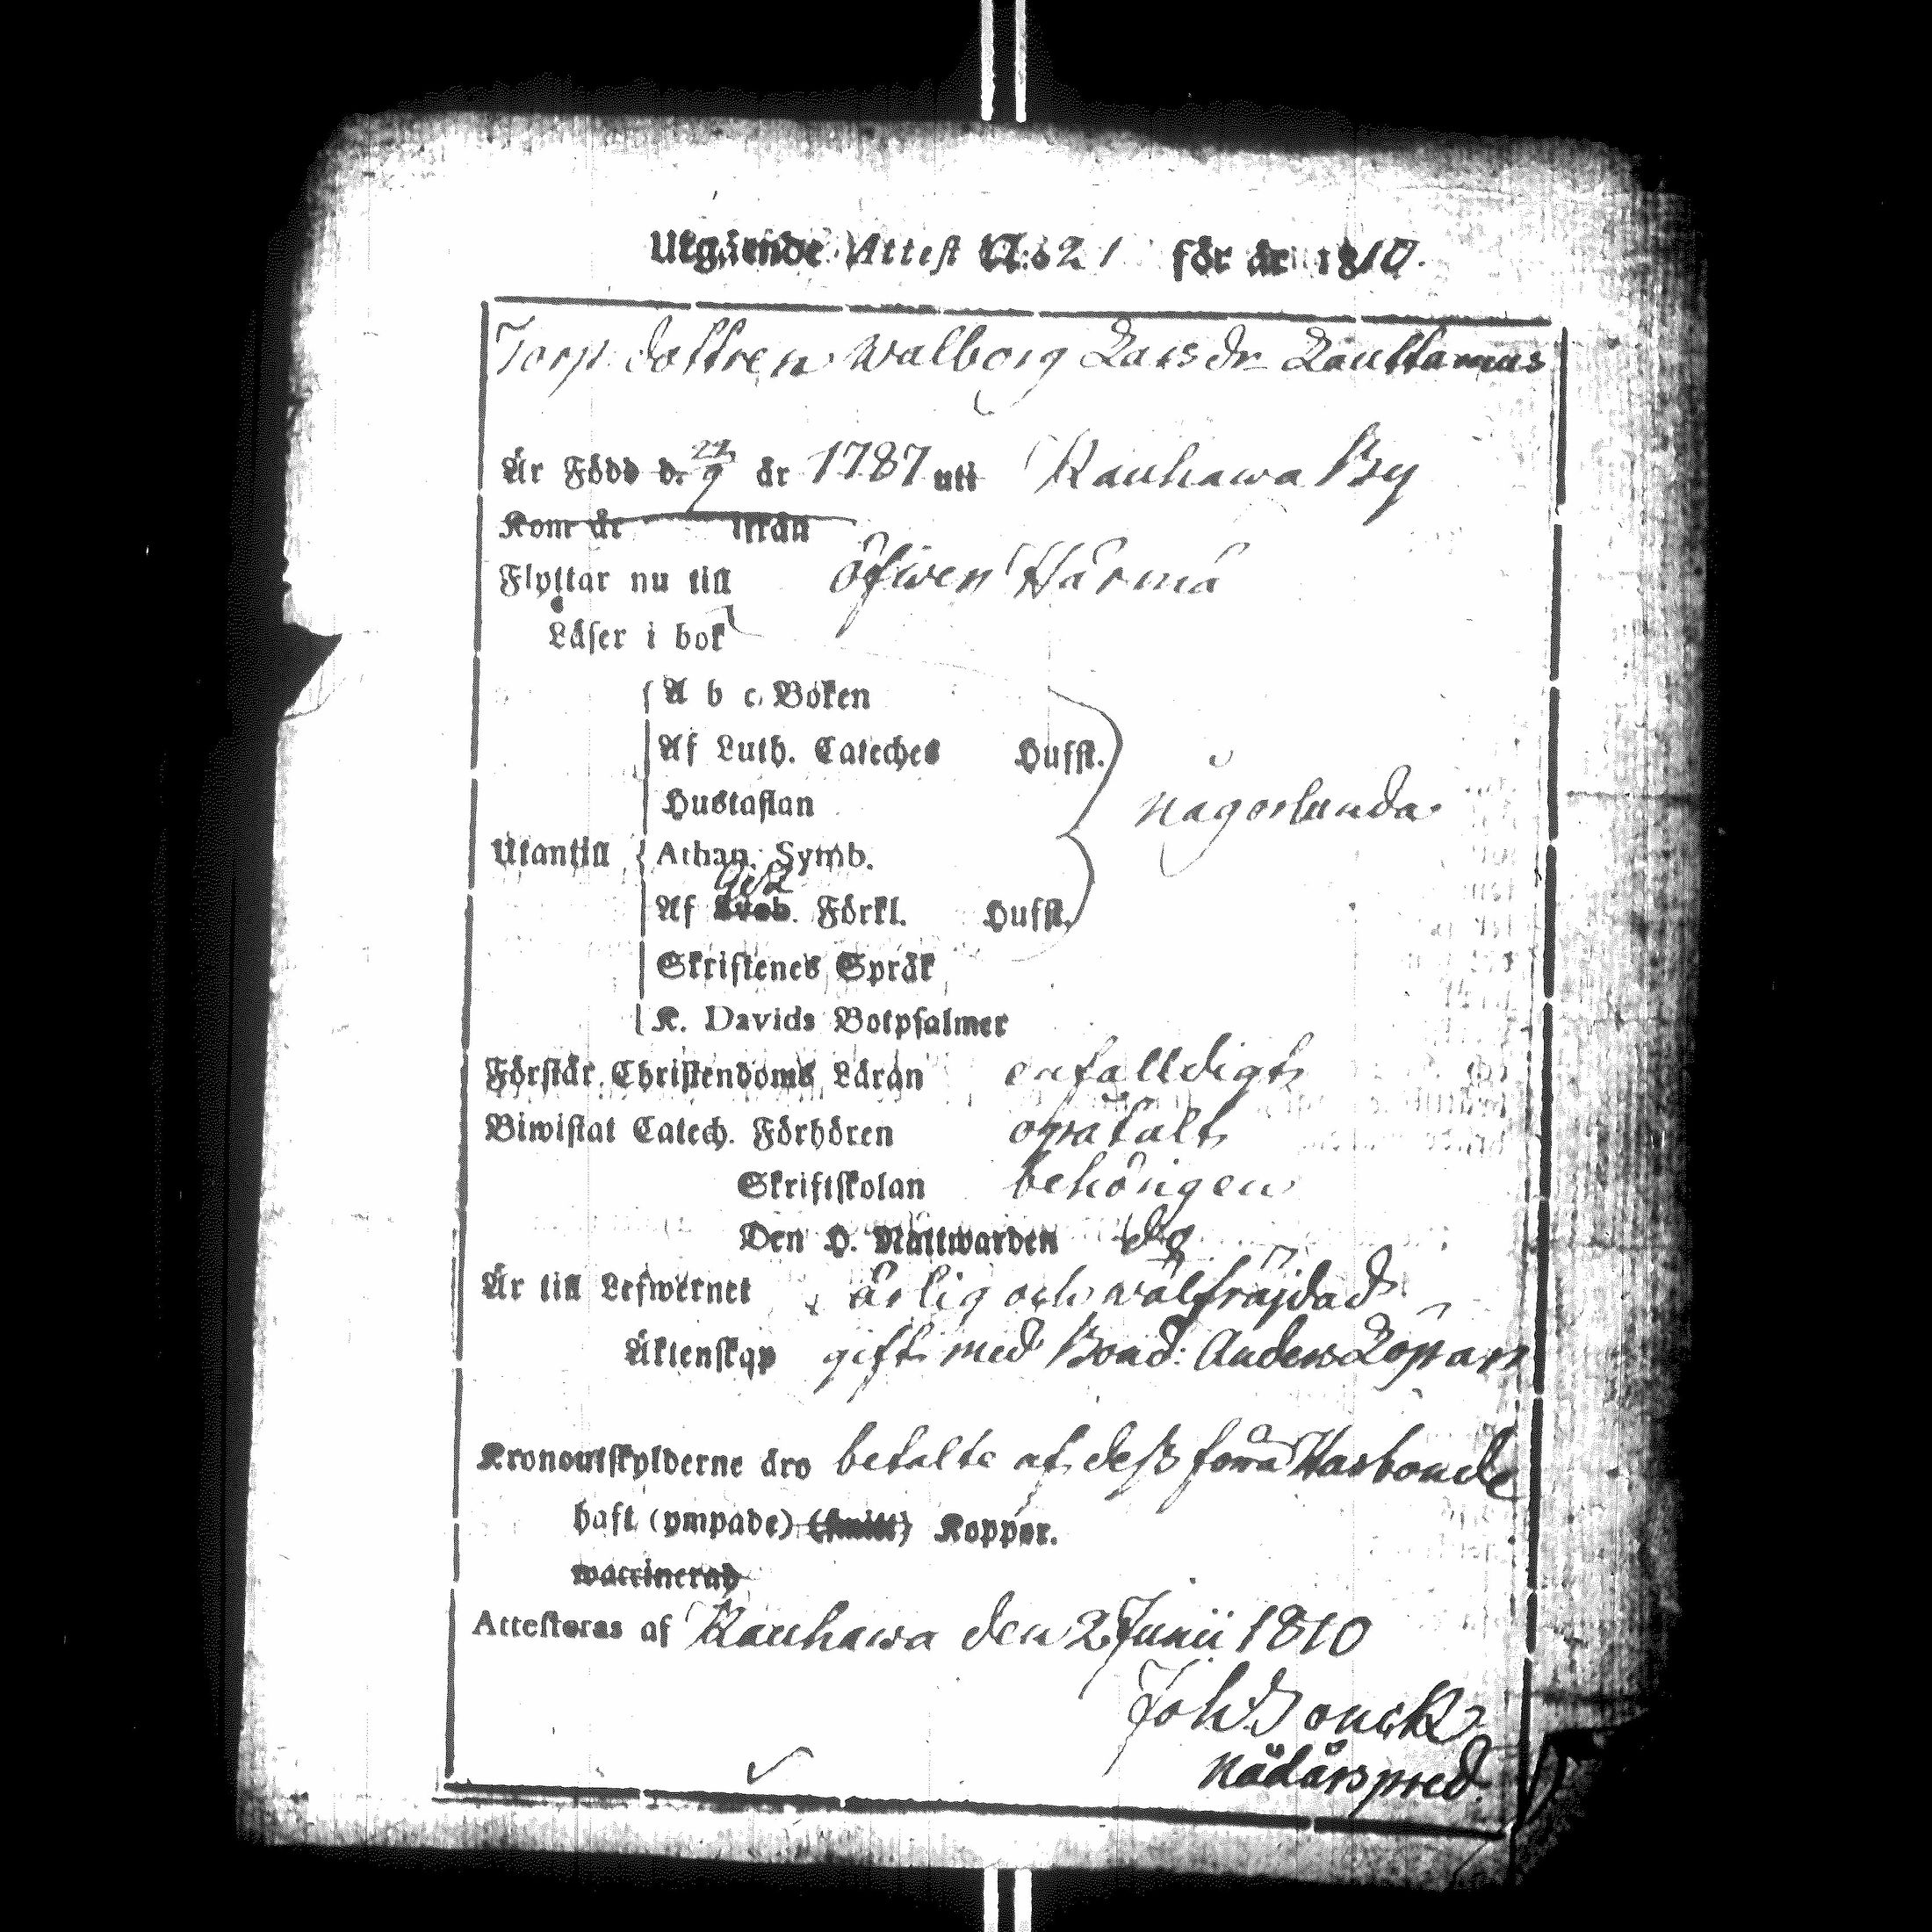 Utgående Attest N:o 21 för år 1810.
Torp. dottren Walborg Larsdr Lauttamus
Är Född d. 24/9 år 1787 uti Kauhawa By
Kom år ifrån
Flyttar nu till Öfwer Härmä
Läser i bok
A b c Boken
Af Luth. Cateches Hufst.
Hustaflan
någorlunda
Utantill Athan. Symb.
Af Sveb. Förkl. Hufst.
Skriftenes Språk
K. Davids Botpsalmer
Förstår Christendoms Läran enfalldigt
Biwistat Catech. Förhören opåtalt
Skriftskolan behörigen
Den H. Nattwarden do
Är till Lefwernet ärlig och wälfräjdad
Äktenskap gift med Bond: Anders
Kronoutskylderne äro betalte af dess förra Husbonde
haft (ympade) (smitt) Koppor.
waccinerad
Attesteras af Kauhawa den 2 Junii 1810
Joh. Bonck
Nådårspred.